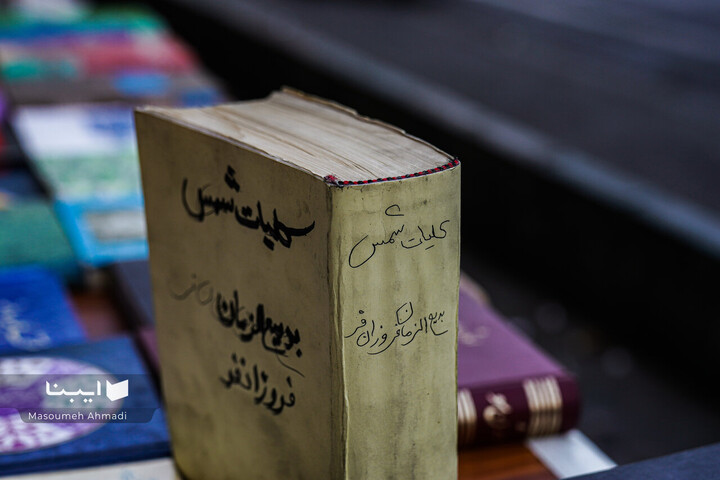 کلیات شمس
بدیع الزمان
فروزانفر
کلیات شمس
بدیع الزمان فروزان فر
ایبنا
Masoumeh Ahmadi